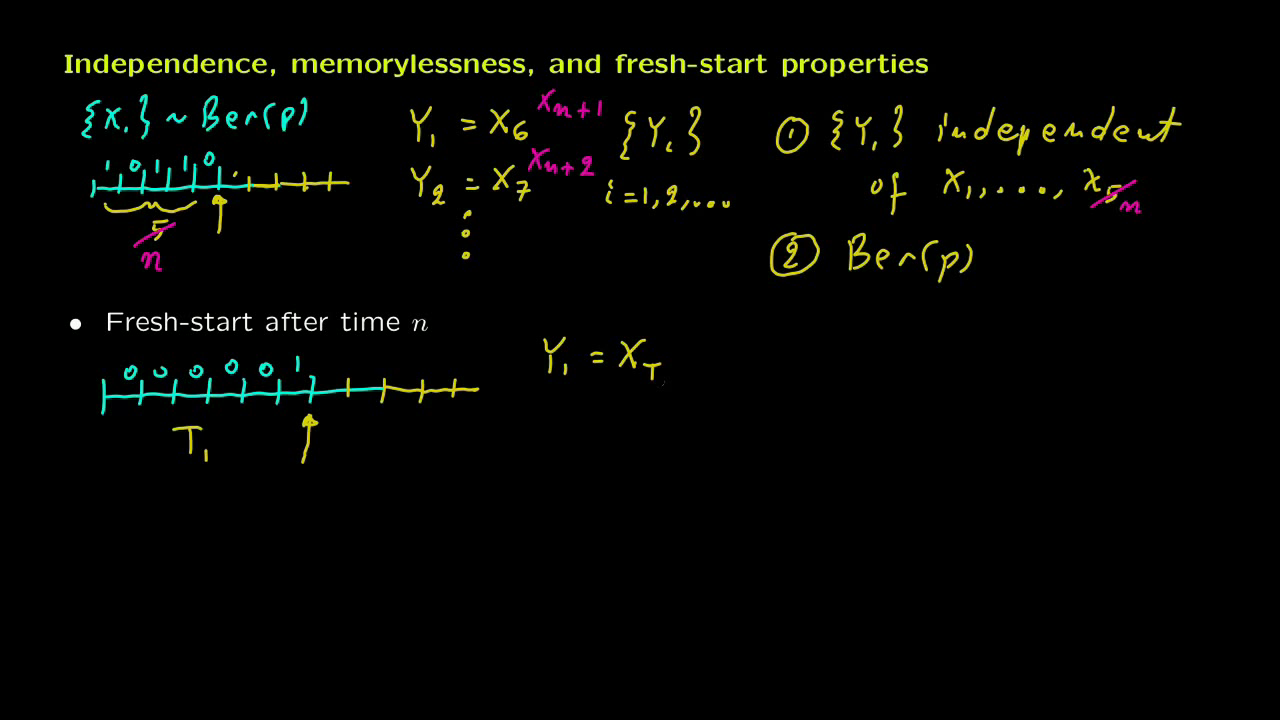 Independence, memorylessness, and fresh-start properties
{Xᵢ} ~ Ber(p)
1 0 1 1 0
5
n
Y₁ = X₆ Xₙ₊₁
Y₂ = X₇ Xₙ₊₂
{Yᵢ}
i = 1, 2, ...
① {Yᵢ} independent
of X₁, ..., X₅ n
② Ber(p)
• Fresh-start after time n
0 0 0 0 0 1
T₁
Y₁ = X_T